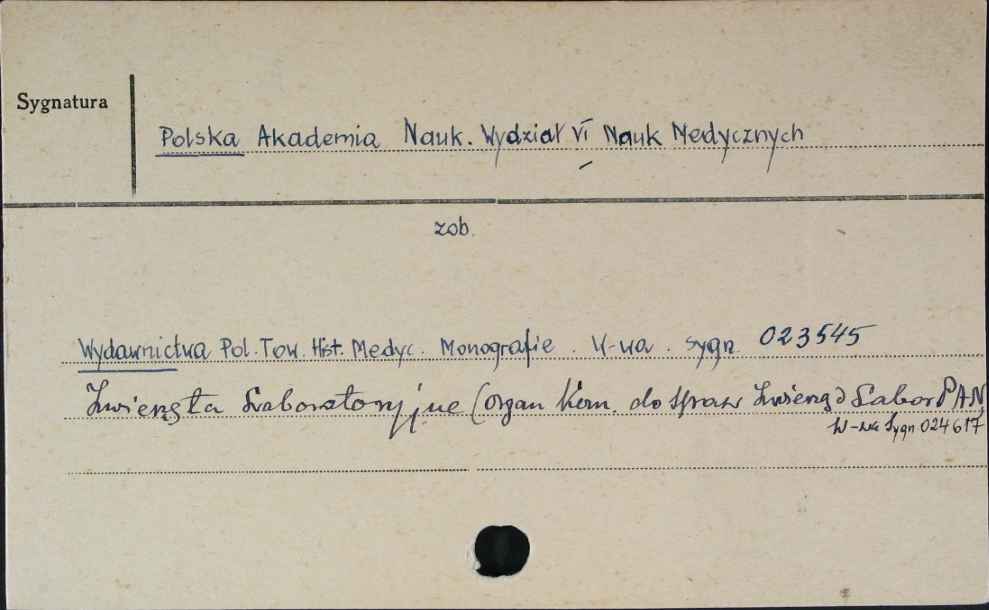 Sygnatura
Polska Akademia Nauk. Wydział VI Nauk Medycznych
zob.
Wydawnictwa Pol. Tow. Hist. Medyc. Monografie. W-wa. sygn. 023545
Zwierzęta Laboratoryjne (Organ Kom. do spraw Zwierząt Labor PAN,
W-wa Sygn 024617